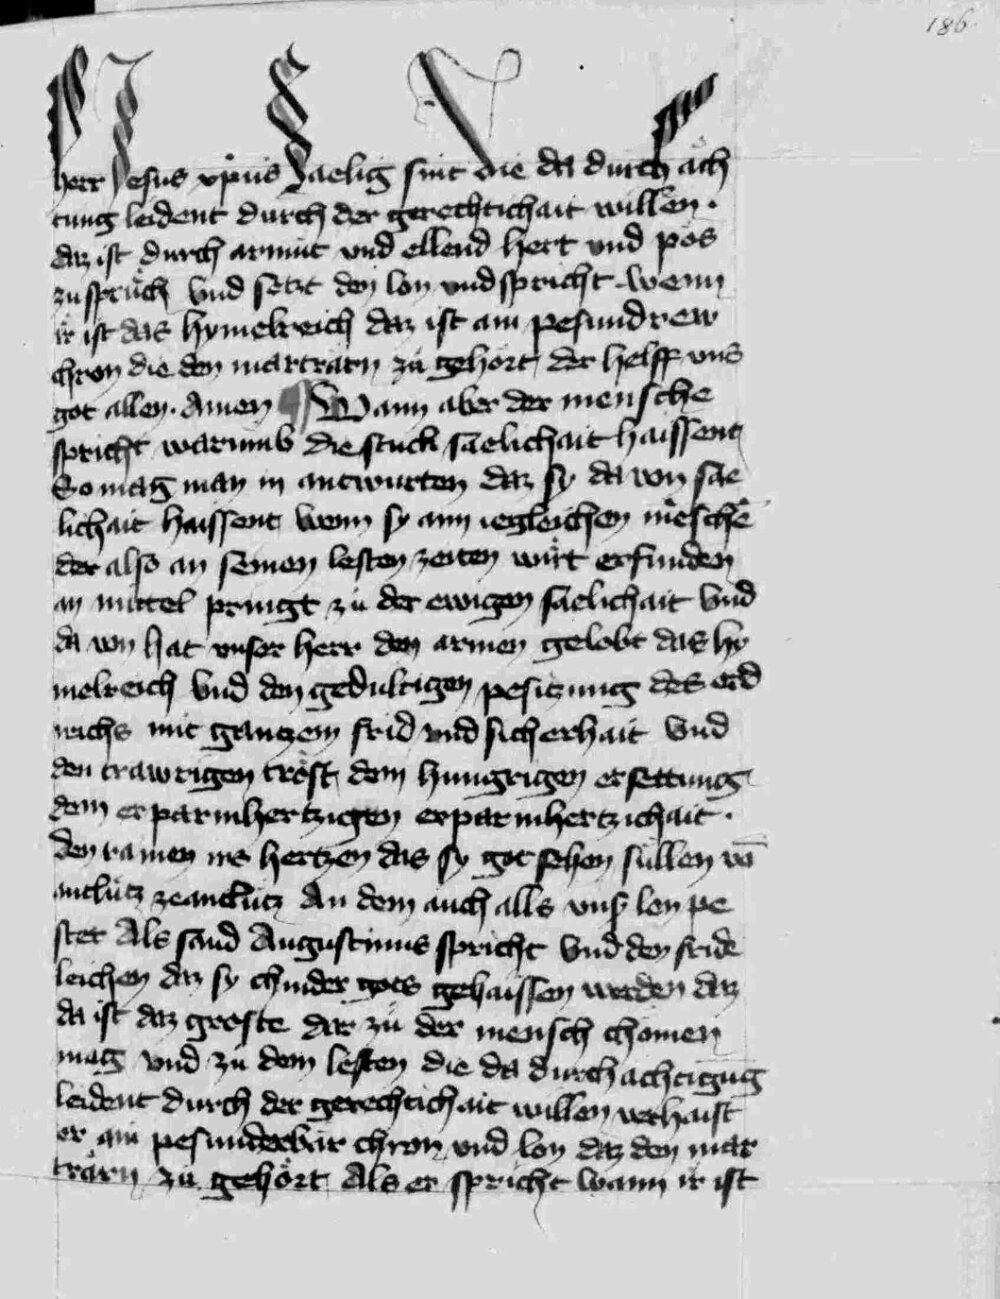 186
herr Jesus xpus Saelig sint die da durch äch
tung leident durch der gerechtichait willen.
daz ist durch armut vnd ellend hert vnd pös
zuspruͤch Vnd setzt den lon vnd spricht wenn
ir ist das hymelreich daz ist ain pesundrew
chron die den martrarn zu gehört der helff vns
got allen. Amen ¶ Wann aber der mensche
spricht warumb die stuck saelichait haissent
So mag man in antwurten daz sy da von sae
lichait haissent wenn sy ainn iegleichen mēschē
der also an seinen lesten zeiten wirt erfunden
an mittel pringt zu der ewigen saelichait Vnd
da von hat vnser herr den armen gelobt das hy
melreich Vnd den gedultigen pesitzung des erd
reichs mit gantzem frid vnd sicherhait Vnd
den trawrigen tröst dem hungrigen ersettung
dem erparmhertzigen erparmhertzichait.
den rainen irs hertzen das sy got sehen süllen vō
antlütz zeantlütz An dem auch alls vnsᷣ lon pe
stet Als sand Augustinus spricht Vnd den fride
leichen daz sy chinder gots gehaissen werden daz
da ist daz gröste dar zu der mensch chomen
mag vnd zu dem lesten die da durchachtigūg
leident durch der gerechtichait willen verhaist
er ain pesunderbar chron vnd lon daz den mar
trärn zu gehört Als er spricht wann ir ist